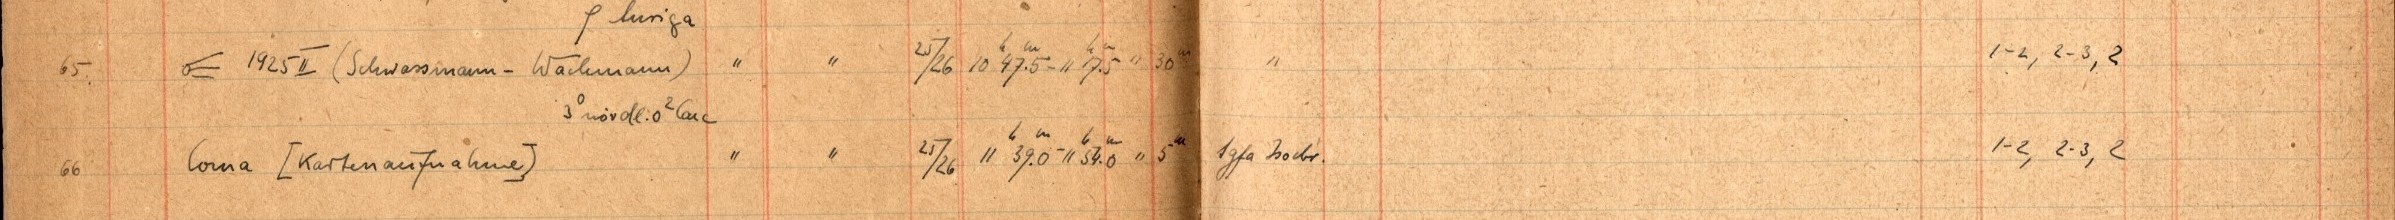 ρ Auriga
65. ☄ 1925 II (Schwassmann-Wachmann) " " 25/26 10ʰ 47ᵐ.5 - 11ʰ 17ᵐ.5 " 30ᵐ " 1-2, 2-3, 2
3° nördl. o² Canc
66 Coma [Kartenaufnahme] " " 25/26 11ʰ 39ᵐ.0 - 11ʰ 54ᵐ.0 " 5ᵐ Agfa Isochr. 1-2, 2-3, 2